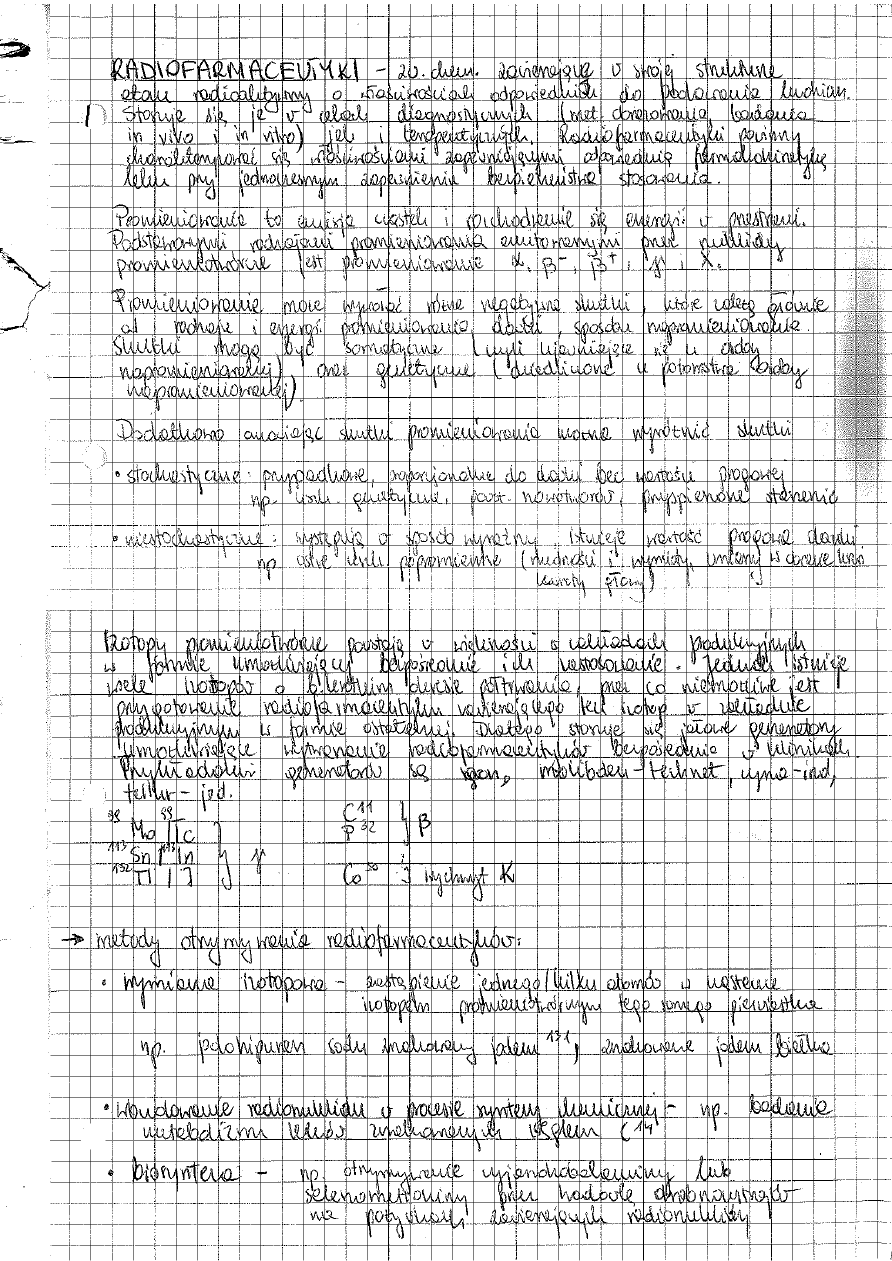 RADIOFARMACEUTYKI - zw. chem. zawierające w swojej strukturze
atom radioaktywny o właściwościach odpowiednich do podawania ludziom.
1) Stosuje się je w celach diagnostycznych (met. obrazowania, badania
in vivo i in vitro) jak i terapeutycznych. Radiofarmaceutyki powinny
charakteryzować się właściwościami zapewniającymi odpowiednią farmakokinetykę
leku przy jednoczesnym zapewnieniu bezpieczeństwa stosowania.
Promieniowanie to emisja cząstek i rozchodzenie się energii w przestrzeni.
Podstawowymi rodzajami promieniowania emitowanymi przez nuklidy
promieniotwórcze jest promieniowanie α, β⁻, β⁺, γ i X.
Promieniowanie może wywołać różne negatywne skutki, które zależą głównie
od rodzaju i energii promieniowania, dawki, sposobu napromieniowania.
Skutki mogą być somatyczne (czyli ujawniające się u osoby
napromieniowanej) oraz genetyczne (dziedziczone u potomstwa osoby
napromieniowanej)
Dodatkowo skutki promieniowania można wyróżnić skutki
• stochastyczne: przypadkowe, proporcjonalne do dawki bez wartości progowej
np. genetyczne, powst. nowotworów, przyspieszone starzenie
• niestochastyczne: występują w sposób wyraźny, istnieje wartość progowa dawki
np. ostre popromienne (nudności i wymioty, zmiany w obrazie krwi
Izotopy promieniotwórcze powstają w większości w zakładach produkcyjnych
w formie umożliwiającej bezpośrednie ich zastosowanie. Jednak istnieje
wiele izotopów o b. krótkim okresie półtrwania, przez co niemożliwe jest
przygotowanie radiofarmaceutyku zawierającego taki izotop w zakładzie
produkcyjnym w formie ostatecznej. Dlatego stosuje się jałowe generatory
umożliwiające otrzymanie radiofarmaceutyków bezpośrednio w klinikach
Przykładami generatorów są molibden-technet, cyna-ind,
tellur - jod.
⁹⁹Mo | ⁹⁹Tc
C¹¹
P³² } β
¹¹³Sn | ¹¹³In } γ
¹³²Tl | J
Co⁵⁰ } wychwyt K
→ metody otrzymywania radiofarmaceutyków:
• wymiana izotopowa - zastąpienie jednego/kilku atomów w cząsteczce
izotopem promieniotwórczym tego samego pierwiastka
np. jodohipuran sodu znakowany jodem ¹³¹, znakowane jodem białka
• wbudowanie radionuklidu w procesie syntezy chemicznej - np. badania
metabolizmu leków znakowanych węglem C¹⁴
• biosynteza - np. otrzymywanie cyjanokobalaminy lub
selenometioniny przez hodowlę drobnoustrojów
na pożywkach zawierających radionuklidy